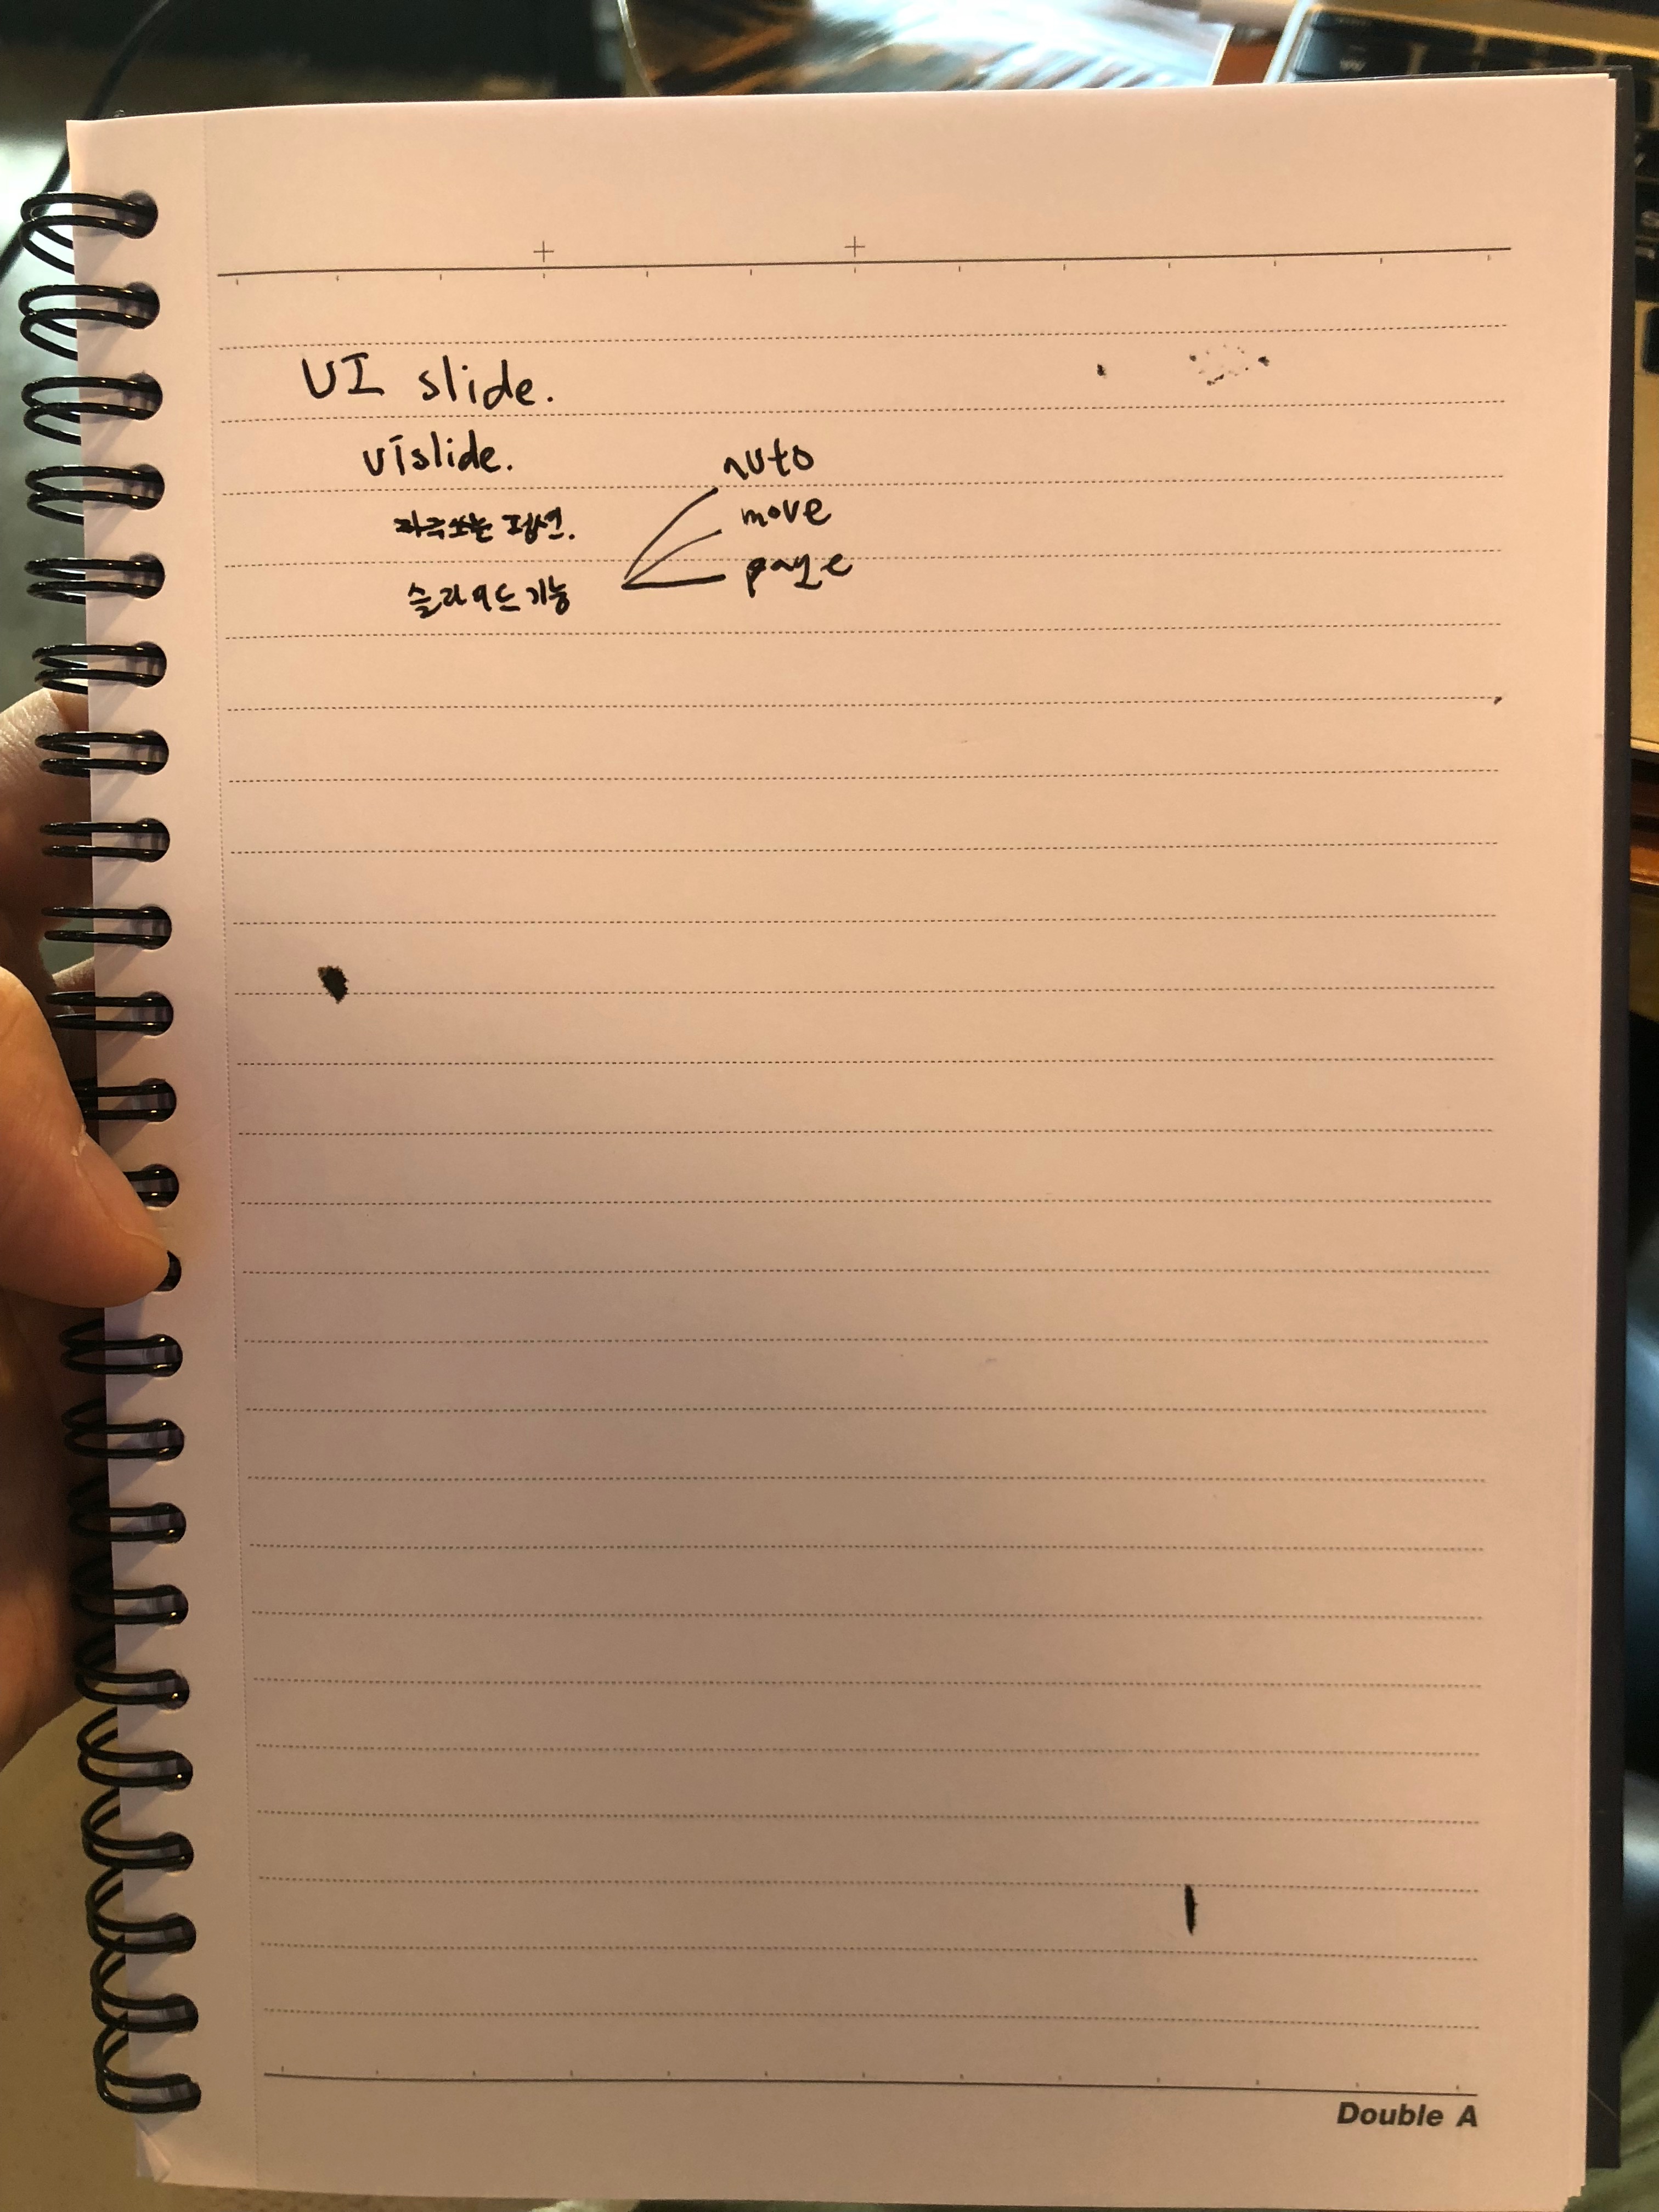 UI slide.
uislide.
자주쓰는 펑션.
슬라이드 기능
auto
move
page
Double A